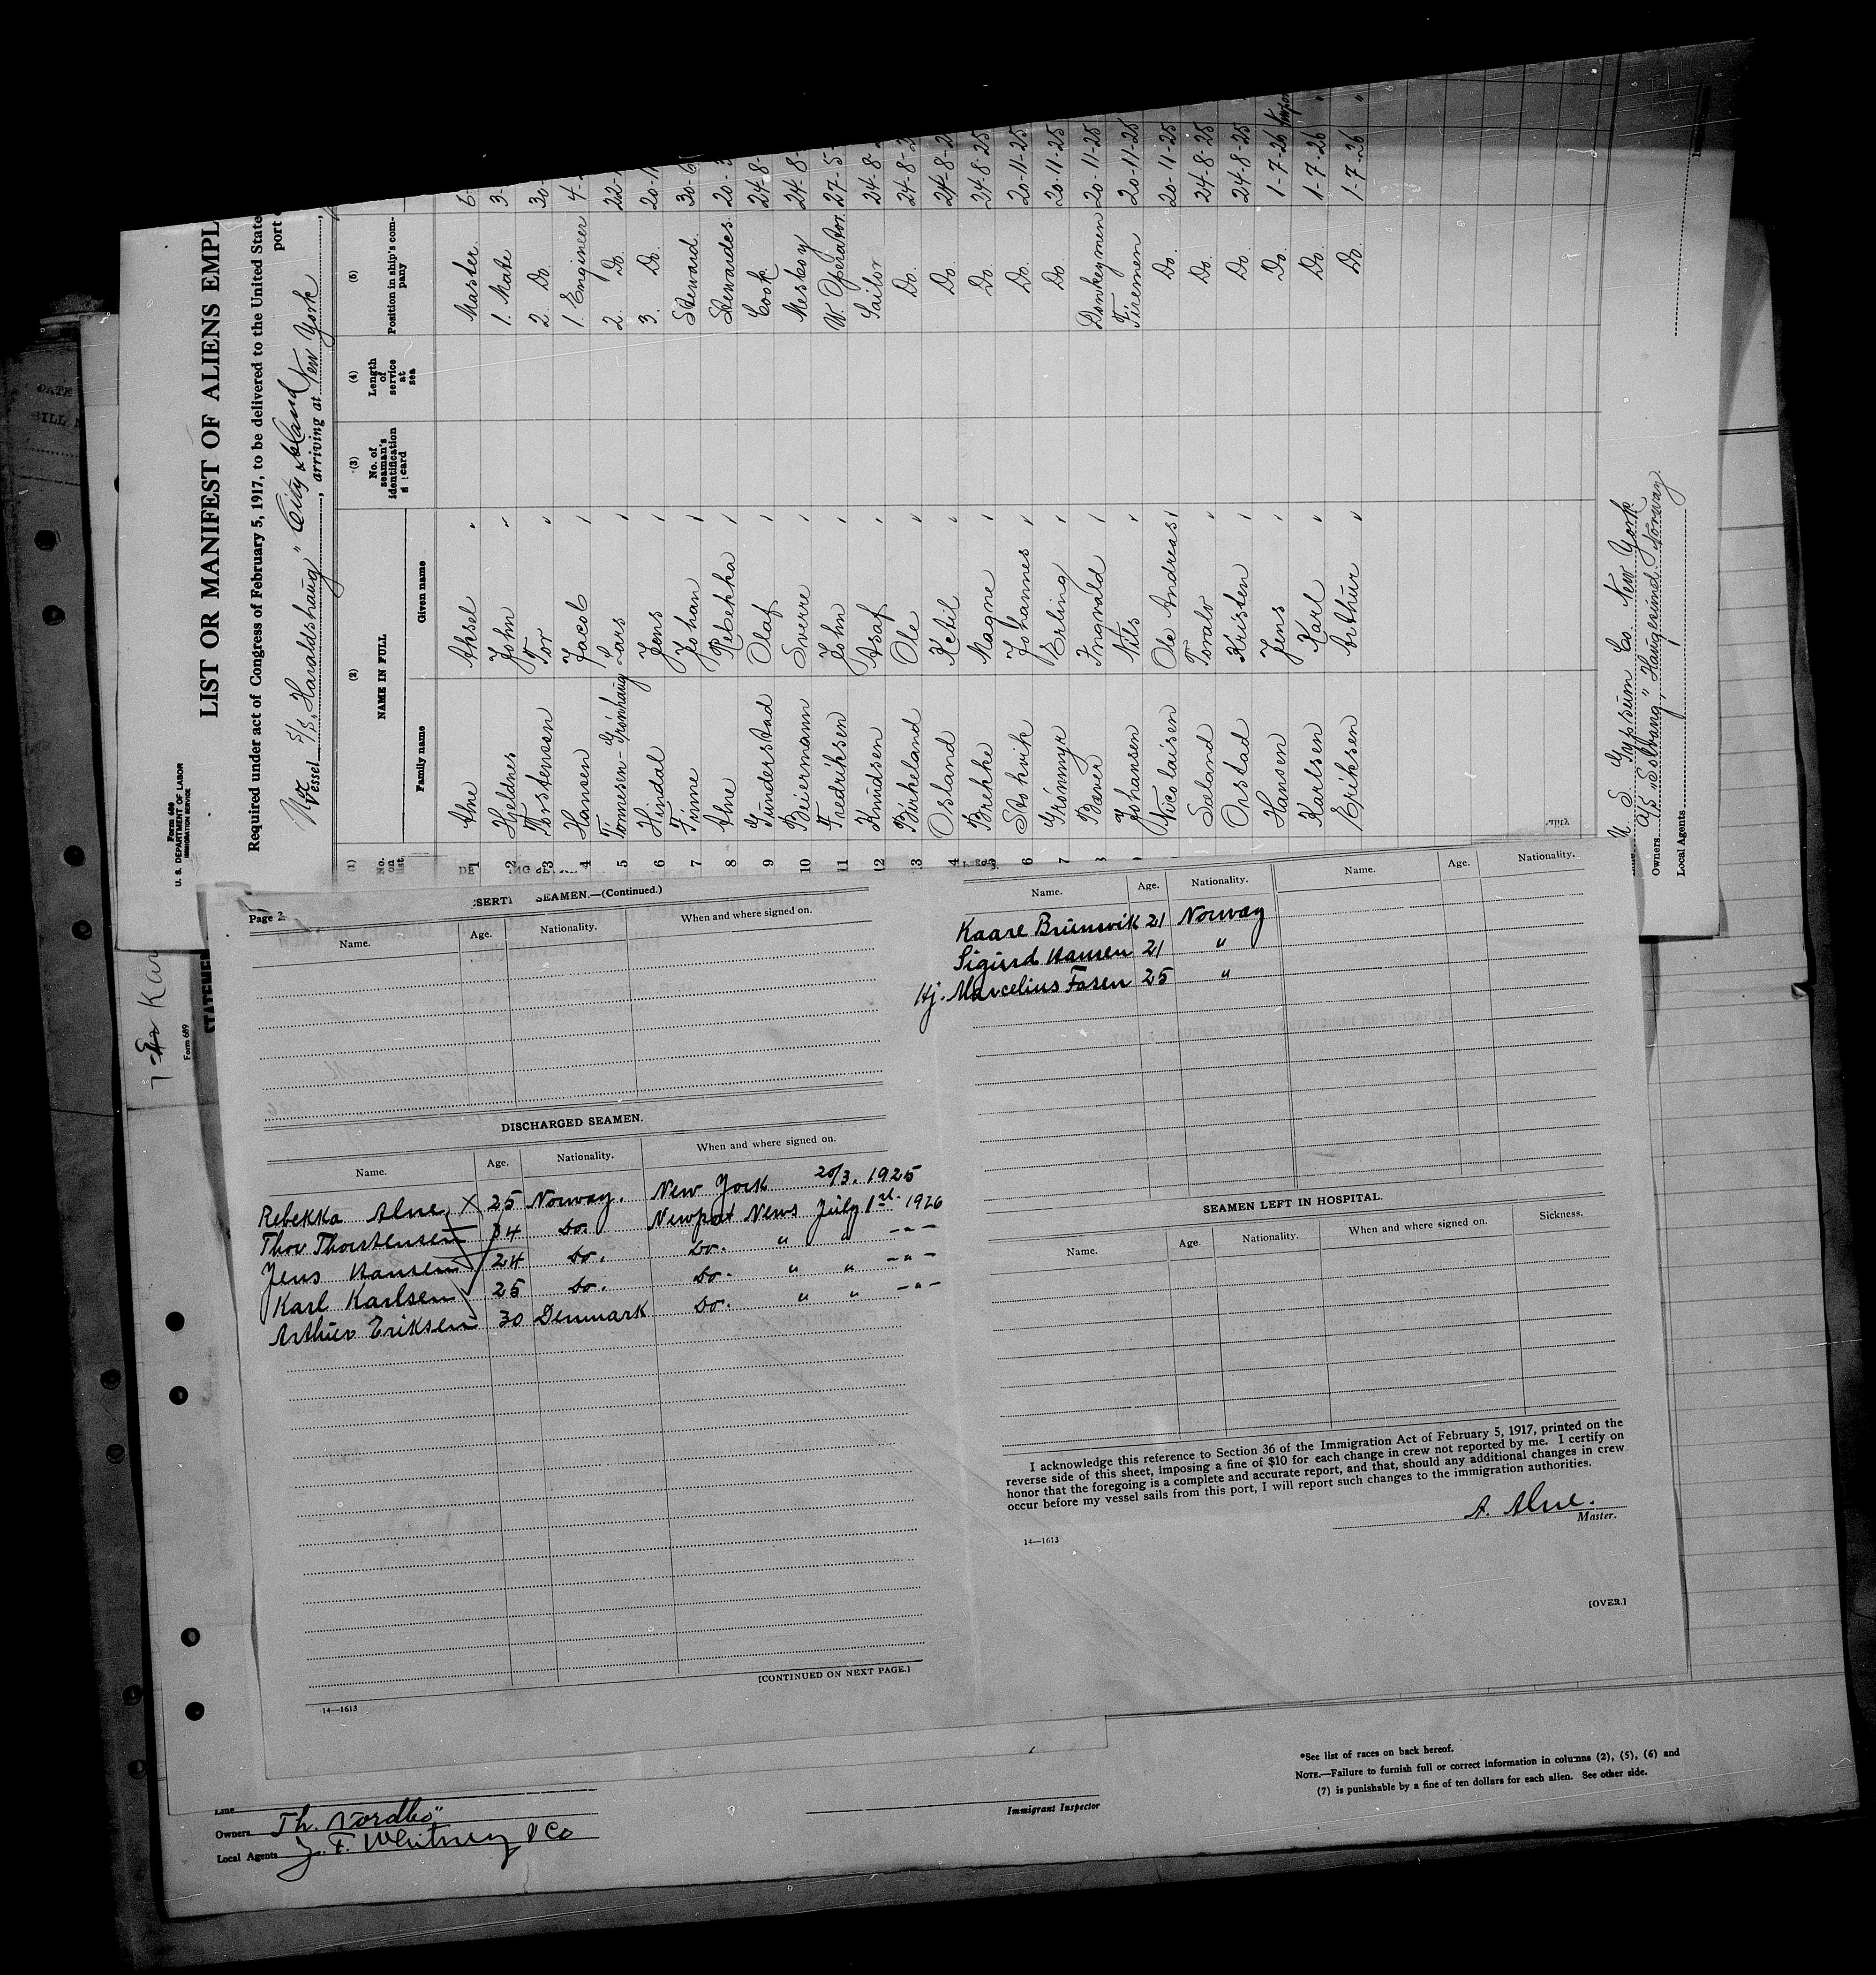 Form 689
U. S. DEPARTMENT OF LABOR
IMMIGRATION SERVICE
LIST OR MANIFEST OF ALIENS EMPL
Required under act of Congress of February 5, 1917, to be delivered to the United State
port
Vessel S/S "Haraldshaug" City Island, arriving at New York
(1) (2) (3) (4) (5)
No. on list
NAME IN FULL
Family name Given name
No. of seaman's identification card
Length of service at sea
Position in ship's company
1 Alne Aksel Master 6-
2 Hjeldnes John 1. Mate 3-
3 Tostensen Tor 2. Do. 30-
4 Hansen Jacob 1. Engineer 4-
5 Tönnesen-Grönhaug Lars 2. Do. 22-1
6 Hindal Jens 3. Do. 20-1
7 Finne Johan Steward. 30-6
8 Alne Rebekka Stewardes. 20-3
9 Gunderstad Olaf Cook 24-8-
10 Beiermann Sverre Messboy 24-8-
11 Fredriksen John W. Operator. 27-5-
12 Knudsen Asaf Sailor 24-8-
13 Birkeland Ole Do. 24-8-2
14 Osland Ketil Do. 24-8-2
Brekke Magne Do. 24-8-25
6 Stokvik Johannes Do. 20-11-25
7 Grömmyr Erling Do. 20-11-25
Bæver Ingvald Donkeymen 20-11-25
Johansen Nils Firemen 20-11-25
Nicolaisen Ole Andreas Do. 20-11-25
Saland Toralv Do. 24-8-25
Orstad Kristen Do. 24-8-25
Hansen Jens Do. 1-7-26
Karlsen Karl Do. 1-7-26 "
Eriksen Arthur Do. 1-7-26 "
U S Gypsum Co New York
Owners A/S "Solvang", Haugesund. Norway.
Local Agents
Form 689
STATEMEN
DATE
BILL
Page 2.
SERTI SEAMEN.—(Continued.)
Name. Age. Nationality. When and where signed on.
DISCHARGED SEAMEN.
Name. Age. Nationality. When and where signed on.
Rebekka Alne X 25 Norway. New York 20/3. 1925
Thor Thorstensen 34 Do. Newport News July 1st. 1926
Jens Hansen 24 Do. Do. " " -"-
Karl Karlsen 25 Do. Do. " " -"-
Arthur Eriksen 30 Denmark Do. " " -"-
[CONTINUED ON NEXT PAGE.]
14—1613
Name. Age. Nationality. Name. Age. Nationality.
Kaare Brunsvik 21 Norway
Sigurd Hansen 21 "
Hj. Marcelius Fasen 25 "
SEAMEN LEFT IN HOSPITAL.
Name. Age. Nationality. When and where signed on. Sickness.
I acknowledge this reference to Section 36 of the Immigration Act of February 5, 1917, printed on the
reverse side of this sheet, imposing a fine of $10 for each change in crew not reported by me. I certify on
honor that the foregoing is a complete and accurate report, and that, should any additional changes in crew
occur before my vessel sails from this port, I will report such changes to the immigration authorities.
A. Alne.
Master.
14—1613
[OVER.]
Line
Owners Th. Nordbö
Local Agents J. F. Whitney & Co
Immigrant Inspector
*See list of races on back hereof.
NOTE.—Failure to furnish full or correct information in columns (2), (5), (6) and
(7) is punishable by a fine of ten dollars for each alien. See other side.